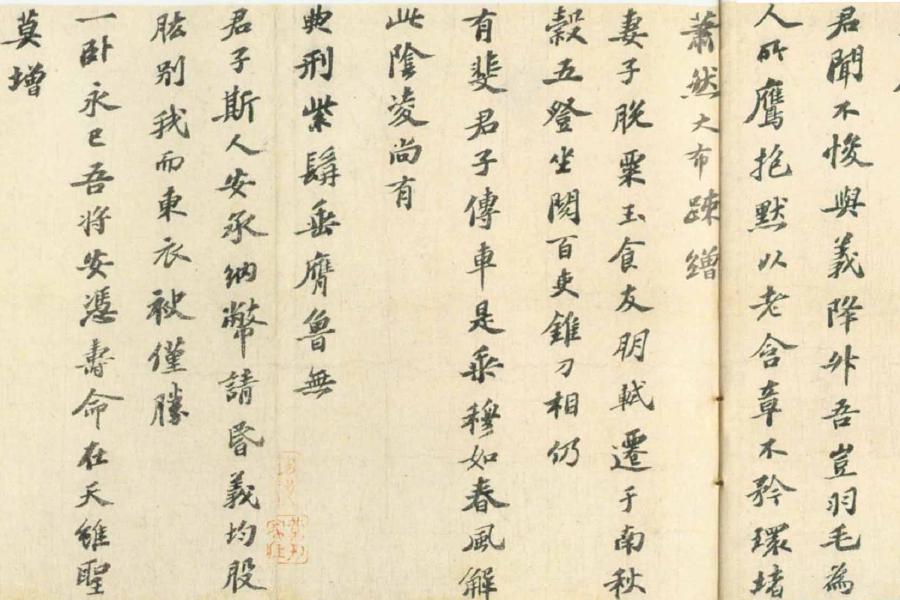 君聞不悛與義降升吾豈羽毛為
人所鷹抱默以老含章不矜環堵
蕭然大布疎繒
妻子脫粟玉食友朋軾遷于南秋
穀五登坐閱百吏錐刀相仍
有斐君子傳車是乘穆如春風解
此陰凌尚有
典刑紫髯垂膺魯無
君子斯人安承納幣請昏義均股
肱別我而東衣被僅勝
一卧永已吾將安憑壽命在天雖聖
莫增